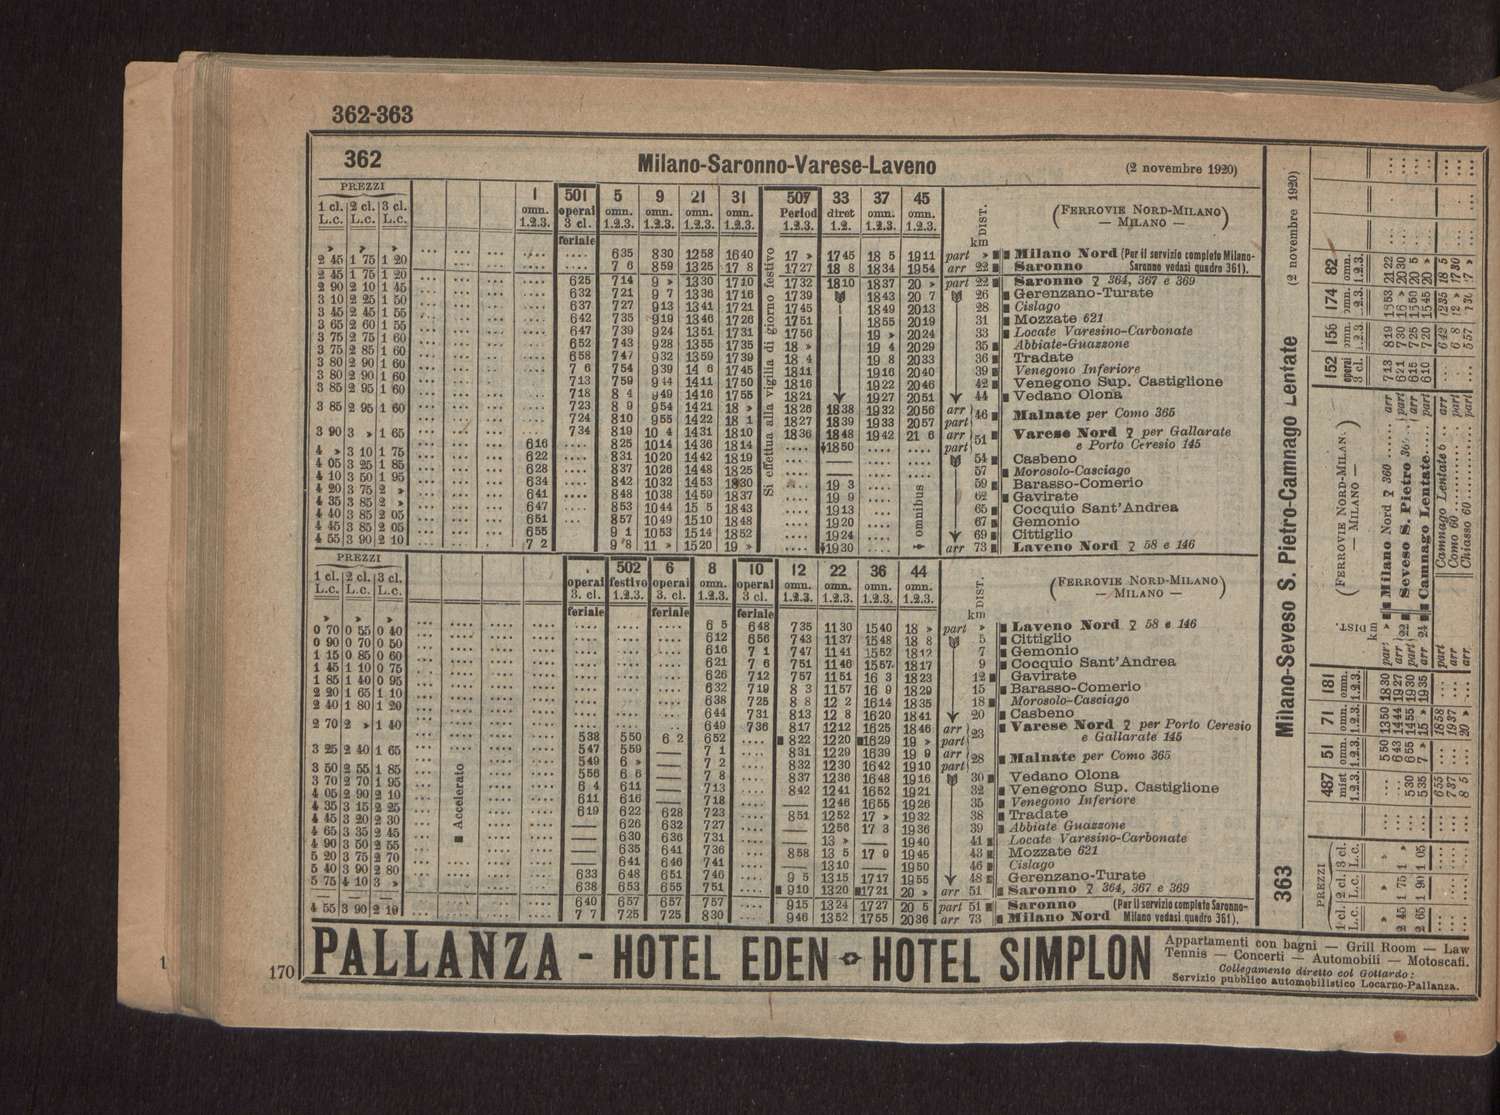 362-363
362 Milano-Saronno-Varese-Laveno (2 novembre 1920)
PREZZI
1 cl. 2 cl. 3 cl.
L.c. L.c. L.c.
1 501 5 9 21 31 507 33 37 45
omn. operai omn. omn. omn. omn. Period diret omn. omn.
1.2.3. 3 cl. 1.2.3. 1.2.3. 1.2.3. 1.2.3. 1.2.3. 1.2. 1.2.3. 1.2.3.
feriale
DIST.
km
(FERROVIE NORD-MILANO)
— MILANO —
Si effettua alla vigilia di giorno festivo
» » » .... .... 635 830 1258 1640 17 » 1745 18 5 1911 part » Milano Nord (Per il servizio completo Milano-
2 45 1 75 1 20 .... .... 7 6 859 1325 17 8 1727 18 8 1834 1954 arr 22 Saronno Saronno vedasi quadro 361).
2 45 1 75 1 20 .... 625 714 9 » 1330 1710 1732 1810 1837 20 » part 22 Saronno 364, 367 e 369
2 90 2 10 1 45 .... 632 721 9 7 1336 1716 1739 1843 20 7 26 Gerenzano-Turate
3 10 2 25 1 50 .... 637 727 913 1341 1721 1745 1849 2013 28 Cislago
3 45 2 45 1 55 .... 642 735 919 1346 1726 1751 1855 2019 31 Mozzate 621
3 65 2 60 1 55 .... 647 739 924 1351 1731 1756 19 » 2024 33 Locate Varesino-Carbonate
3 75 2 75 1 60 .... 652 743 928 1355 1735 18 » 19 4 2029 35 Abbiate-Guazzone
3 75 2 85 1 60 .... 658 747 932 1359 1739 18 4 19 8 2033 36 Tradate
3 80 2 90 1 60 .... 7 6 754 939 14 6 1745 1811 1916 2040 39 Venegono Inferiore
3 80 2 90 1 60 .... 713 759 944 1411 1750 1816 1922 2046 42 Venegono Sup. Castiglione
3 85 2 95 1 60 .... 718 8 4 949 1416 1755 1821 1927 2051 44 Vedano Olona
3 85 2 95 1 60 .... 723 8 9 954 1421 18 » 1826 1838 1932 2056 arr 46 Malnate per Como 365
.... 724 810 955 1422 18 1 1827 1839 1933 2057 part
3 90 3 » 1 65 .... 734 819 10 4 1431 1810 1836 1848 1942 21 6 arr 51 Varese Nord per Gallarate
616 .... 825 1014 1436 1814 .... 1850 .... .... part e Porto Ceresio 145
4 » 3 10 1 75 622 .... 831 1020 1442 1819 .... — .... 54 Casbeno
4 05 3 25 1 85 628 .... 837 1026 1448 1825 .... — .... 57 Morosolo-Casciago
4 10 3 50 1 95 634 .... 842 1032 1453 1830 .... 19 3 .... 59 Barasso-Comerio
4 20 3 75 2 » 641 .... 848 1038 1459 1837 .... 19 9 .... 62 Gavirate
4 35 3 85 2 » 647 .... 853 1044 15 5 1843 .... 1913 .... 65 Cocquio Sant'Andrea
4 40 3 85 2 05 651 .... 857 1049 1510 1848 .... 1920 .... 67 Gemonio
4 45 3 85 2 05 655 9 1 1053 1514 1852 .... 1924 .... 69 Cittiglio
4 55 3 90 2 10 7 2 9 8 11 » 1520 19 » .... 1930 .... arr 73 Laveno Nord 58 e 146
omnibus
PREZZI
1 cl. 2 cl. 3 cl.
L.c. L.c. L.c.
502 6 8 10 12 22 36 44
operai festivo operai omn. operai omn. omn. omn. omn.
3. cl. 1.2.3. 3. cl. 1.2.3. 3 cl. 1.2.3. 1.2.3. 1.2.3. 1.2.3.
feriale feriale feriale
DIST.
km
(FERROVIE NORD-MILANO)
— MILANO —
Accelerato
» » » 6 5 648 735 1130 1540 18 » part » Laveno Nord 58 e 146
0 70 0 55 0 40 612 656 743 1137 1548 18 8 5 Cittiglio
0 90 0 70 0 50 616 7 1 747 1141 1552 1812 7 Gemonio
1 15 0 85 0 60 621 7 6 751 1146 1557 1817 9 Cocquio Sant'Andrea
1 45 1 10 0 75 626 712 757 1151 16 3 1823 12 Gavirate
1 85 1 40 0 95 632 719 8 3 1157 16 9 1829 15 Barasso-Comerio
2 20 1 65 1 10 638 725 8 8 12 2 1614 1835 18 Morosolo-Casciago
2 40 1 80 1 20 644 731 813 12 8 1620 1841 20 Casbeno
2 70 2 » 1 40 649 736 817 1212 1625 1846 arr 23 Varese Nord per Porto Ceresio
538 550 6 2 652 .... 822 1220 1629 19 » part e Gallarate 145
3 25 2 40 1 65 547 559 — 7 1 .... 831 1229 1639 19 9 arr 28 Malnate per Como 365
549 6 » — 7 2 .... 832 1230 1642 1910 part
3 50 2 55 1 85 556 6 6 — 7 8 .... 837 1236 1648 1916 30 Vedano Olona
3 70 2 70 1 95 6 4 611 — 713 .... 842 1241 1652 1921 32 Venegono Sup. Castiglione
4 05 2 90 2 10 611 616 — 718 .... — 1246 1655 1926 35 Venegono Inferiore
4 35 3 15 2 25 619 622 628 723 .... 851 1252 17 » 1932 38 Tradate
4 45 3 20 2 30 — 626 632 727 .... — 1256 17 3 1936 39 Abbiate Guazzone
4 65 3 35 2 45 — 630 636 731 .... — 13 » — 1940 41 Locate Varesino-Carbonate
4 90 3 50 2 55 — 635 641 736 .... 858 13 5 17 9 1945 43 Mozzate 621
5 20 3 75 2 70 — 641 646 741 .... — 1310 — 1950 46 Cislago
5 40 3 90 2 80 633 648 651 746 .... 9 5 1315 1717 1955 48 Gerenzano-Turate
5 75 4 10 3 » 638 653 655 751 .... 910 1320 1721 20 » arr 51 Saronno 364, 367 e 369
— — — 640 657 657 757 .... 915 1324 1727 20 5 part 51 Saronno (Per il servizio completo Saronno-
4 55 3 90 2 10 7 7 725 725 830 .... 946 1352 1755 2036 arr 73 Milano Nord Milano vedasi quadro 361).
363 Milano-Seveso S. Pietro-Camnago Lentate (2 novembre 1920)
PREZZI
1 cl. 2 cl. 3 cl.
L.c. L.c. L.c.
487 51 71 181
mist omn. omn. omn.
1.2.3. 1.2.3. 1.2.3. 1.2.3.
DIST.
km
(FERROVIE NORD-MILAN.)
— MILANO —
152 156 174 82
operai omn. omn. omn.
3 cl. 1.2.3. 1.2.3. 1.2.3.
» » » ... 550 1350 1830 part » Milano Nord 360 arr 713 819 1553 2122
2 45 1 75 1 » ... 643 1444 1927 arr 22 Seveso S. Pietro part 621 730 15 » 2030
530 655 1455 1930 part arr 615 725 1450 20 5
2 65 1 90 1 05 535 7 » 15 » 1935 arr 24 Camnago Lentate part 610 720 1445 20 »
655 ... 1858 ... part Camnago Lentate arr ... 642 1235 18 5
737 ... 1937 ... arr Como 60 part ... 6 8 12 » 1730
8 5 ... 20 » ... arr Chiasso 60 part ... 557 17 »
PALLANZA - HOTEL EDEN - HOTEL SIMPLON
Appartamenti con bagni — Grill Room — Law
Tennis — Concerti — Automobili — Motoscafi.
Collegamento diretto col Gottardo:
Servizio pubblico automobilistico Locarno-Pallanza.
170
1